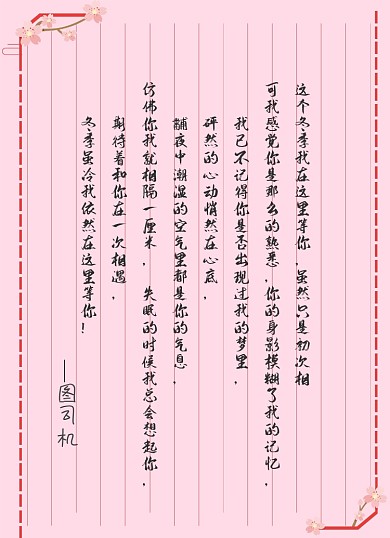 这个冬季我在这里等你，虽然只是初次相
可我感觉你是那么的熟悉，你的身影模糊了我的记忆，
我已不记得你是否出现过我的梦里，
砰然的心动悄然在心底，
黼夜中潮湿的空气里都是你的气息，
仿佛你我就相隔一厘米，失眠的时候我总会想起你，
期待着和你在一次相遇，
冬季虽冷我依然在这里等你！
—图司机